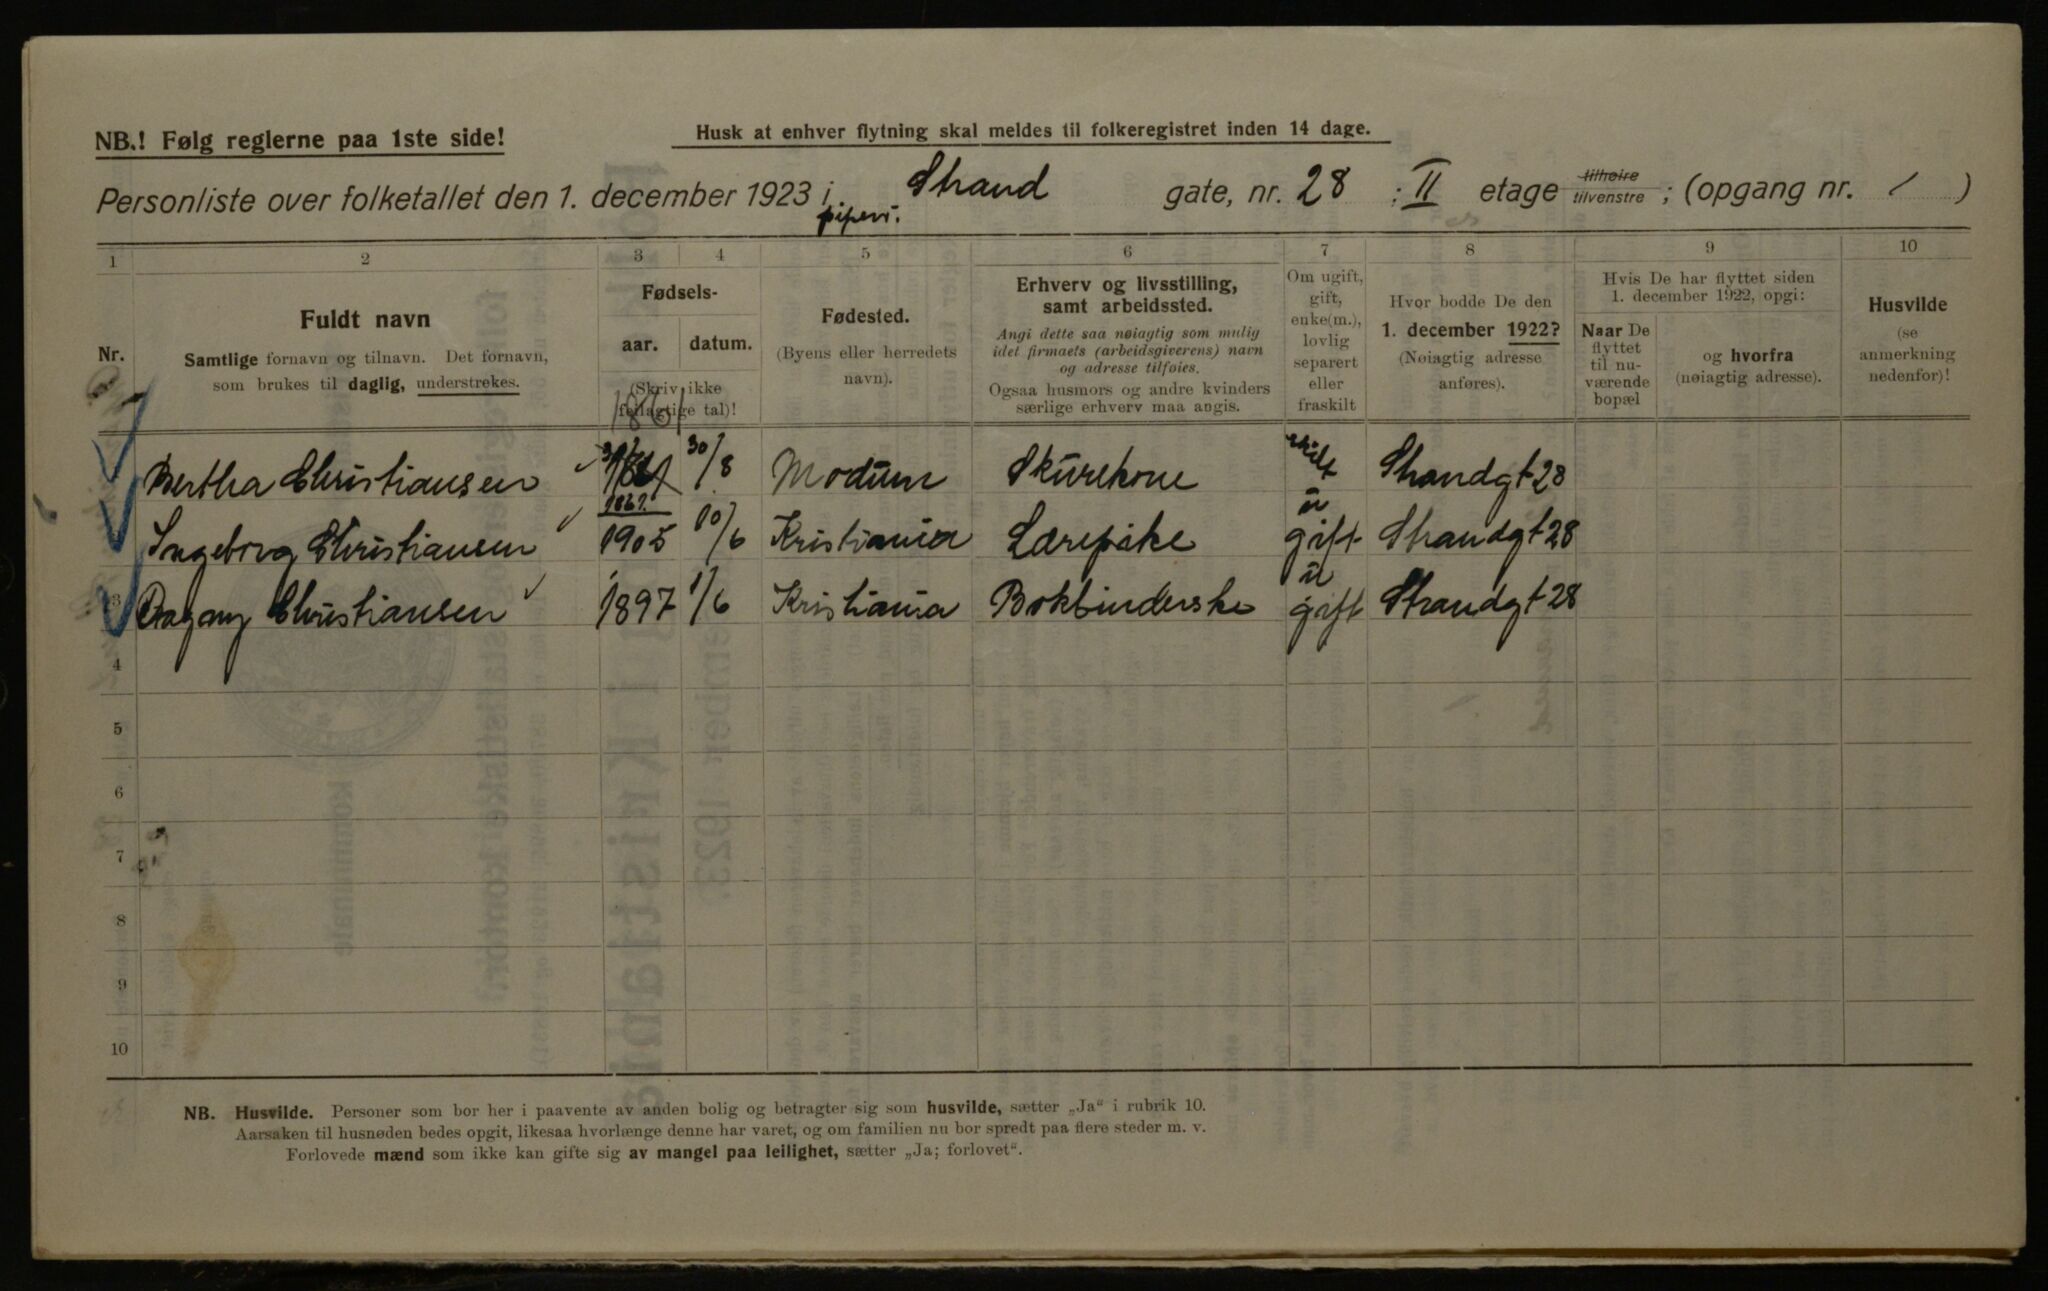 NB.! Følg reglerne paa 1ste side!
Husk at enhver flytning skal meldes til folkeregistret inden 14 dage.
Personliste over folketallet den 1. december 1923 i Strand gate, nr. 28 : II etage tilhøire tilvenstre ; (opgang nr. / )
piperv.
1 2 3 4 5 6 7 8 9 10
Nr.
Fuldt navn
Samtlige fornavn og tilnavn. Det fornavn,
som brukes til daglig, understrekes.
Fødsels-
aar. datum.
(Skriv ikke
feilagtige tal)!
Fødested.
(Byens eller herredets
navn).
Erhverv og livsstilling,
samt arbeidssted.
Angi dette saa nøiagtig som mulig
idet firmaets (arbeidsgiverens) navn
og adresse tilføies.
Ogsaa husmors og andre kvinders
særlige erhverv maa angis.
Om ugift,
gift,
enke(m.),
lovlig
separert
eller
fraskilt
Hvor bodde De den
1. december 1922?
(Nøiagtig adresse
anføres).
Hvis De har flyttet siden
1. december 1922, opgi:
Naar De
flyttet
til nu-
værende
bopæl
og hvorfra
(nøiagtig adresse).
Husvilde
(se
anmerkning
nedenfor)!
1861
Bertha Christiansen 30/8 Modum Skurekone skilt Strandgt 28
1867.
Ingeborg Christiansen 1905 10/6 Kristiania Lærepike ugift Strandgt 28
3 Dagny Christiansen 1897 1/6 Kristiania Bokbinderske ugift Strandgt 28
4
5
6
7
8
9
10
NB. Husvilde. Personer som bor her i paavente av anden bolig og betragter sig som husvilde, sætter „Ja“ i rubrik 10.
Aarsaken til husnøden bedes opgit, likesaa hvorlænge denne har varet, og om familien nu bor spredt paa flere steder m. v.
Forlovede mænd som ikke kan gifte sig av mangel paa leilighet, sætter „Ja; forlovet“.